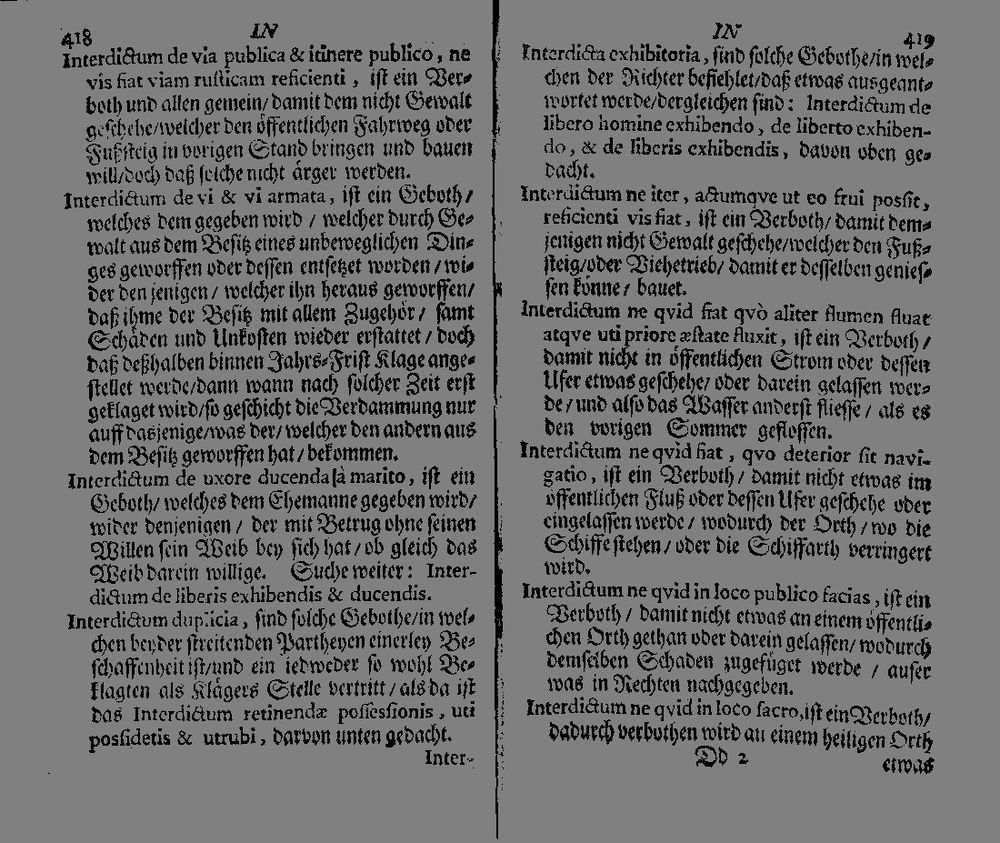 418 IN
Interdictum de via publica & itinere publico, ne
vis fiat viam rusticam reficienti, ist ein Ver-
both und allen gemein/ damit dem nicht Gewalt
geschehe/welcher den öffentlichen Fahrweg oder
Fußsteig in vorigen Stand bringen und bauen
will/doch daß solche nicht ärger werden.
Interdictum de vi & vi armata, ist ein Geboth/
welches dem gegeben wird / welcher durch Ge-
walt aus dem Besitz eines unbeweglichen Din-
ges geworffen oder dessen entsetzet worden / wi-
der den jenigen / welcher ihn heraus geworffen/
daß ihme der Besitz mit allem Zugehör / samt
Schäden und Unkosten wieder erstattet / doch
daß deßhalben binnen Jahrs-Frist Klage ange-
stellet werde/dann wann nach solcher Zeit erst
geklaget wird/so geschicht die Verdammung nur
auff dasjenige/was der/ welcher den andern aus
dem Besitz geworffen hat/ bekommen.
Interdictum de uxore ducenda à marito, ist ein
Geboth/ welches dem Ehemanne gegeben wird/
wider denjenigen / der mit Betrug ohne seinen
Willen sein Weib bey sich hat / ob gleich das
Weib darein willige. Suche weiter: Inter-
dictum de liberis exhibendis & ducendis.
Interdictum duplicia, sind solche Gebothe/in wel-
chen beyder streitenden Partheyen einerley Be-
schaffenheit ist/und ein iedweder so wohl Be-
klagten als Klägers Stelle vertritt / als da ist
das Interdictum retinendæ possessionis, uti
possidetis & utrubi, darvon unten gedacht.
Inter-
IN 419
Interdicta exhibitoria, sind solche Gebothe/in wel-
chen der Richter befiehlet/daß etwas ausgeant-
wortet werde/dergleichen sind: Interdictum de
libero homine exhibendo, de liberto exhiben-
do, & de liberis exhibendis, davon oben ge-
dacht.
Interdictum ne iter, actumqve ut eo frui possit,
reficienti vis fiat, ist ein Verboth/ damit dem-
jenigen nicht Gewalt geschehe/welcher den Fuß-
steig/oder Viehetrieb/ damit er desselben genies-
sen könne / bauet.
Interdictum ne qvid fiat qvò aliter flumen fluat
atqve uti priore æstate fluxit, ist ein Verboth /
damit nicht in öffentlichen Strom oder dessen
Ufer etwas geschehe/ oder darein gelassen wer-
de / und also das Wasser anderst fliesse / als es
den vorigen Sommer geflossen.
Interdictum ne qvid fiat, qvo deterior sit navi-
gatio, ist ein Verboth / damit nicht etwas im
öffentlichen Fluß oder dessen Ufer geschehe oder
eingelassen werde / wodurch der Orth / wo die
Schiffe stehen / oder die Schiffarth verringert
wird.
Interdictum ne qvid in loco publico facias, ist ein
Verboth / damit nicht etwas an einem öffentli-
chen Orth gethan oder darein gelassen/ wodurch
demselben Schaden zugefüget werde / auser
was in Rechten nachgegeben.
Interdictum ne qvid in loco sacro, ist ein Verboth/
dadurch verbothen wird an einem heiligen Orth
Dd 2 etwas